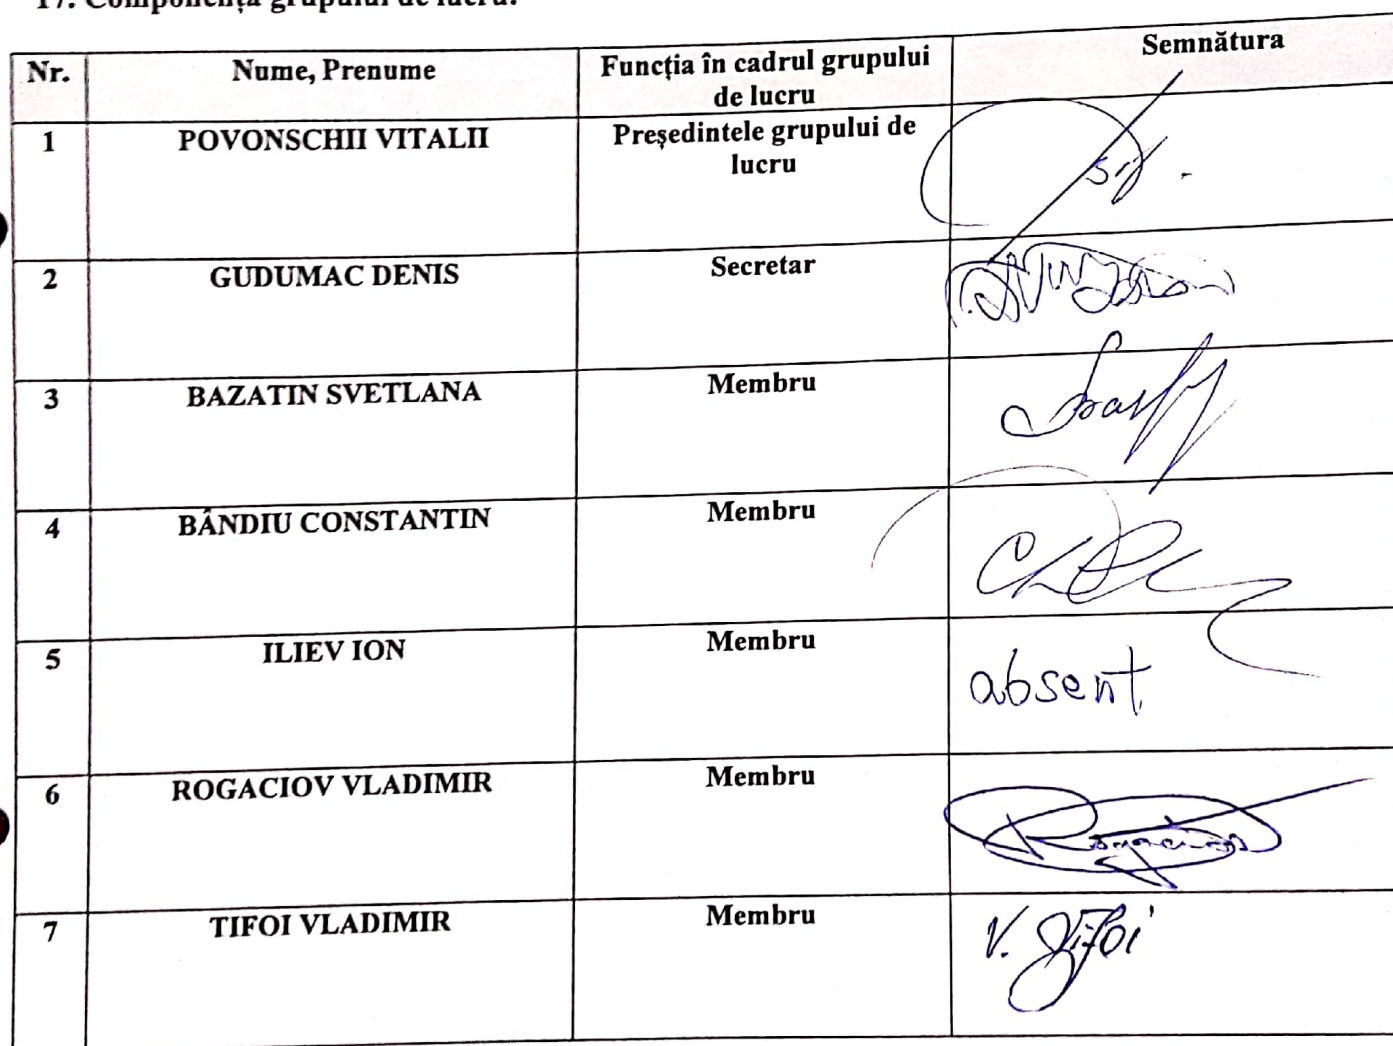 17. Componența grupului de lucru:
Nr. Nume, Prenume Funcția în cadrul grupului de lucru Semnătura
1 POVONSCHII VITALII Președintele grupului de lucru
2 GUDUMAC DENIS Secretar
3 BAZATIN SVETLANA Membru
4 BÂNDIU CONSTANTIN Membru
5 ILIEV ION Membru absent
6 ROGACIOV VLADIMIR Membru
7 TIFOI VLADIMIR Membru V. Tifoi